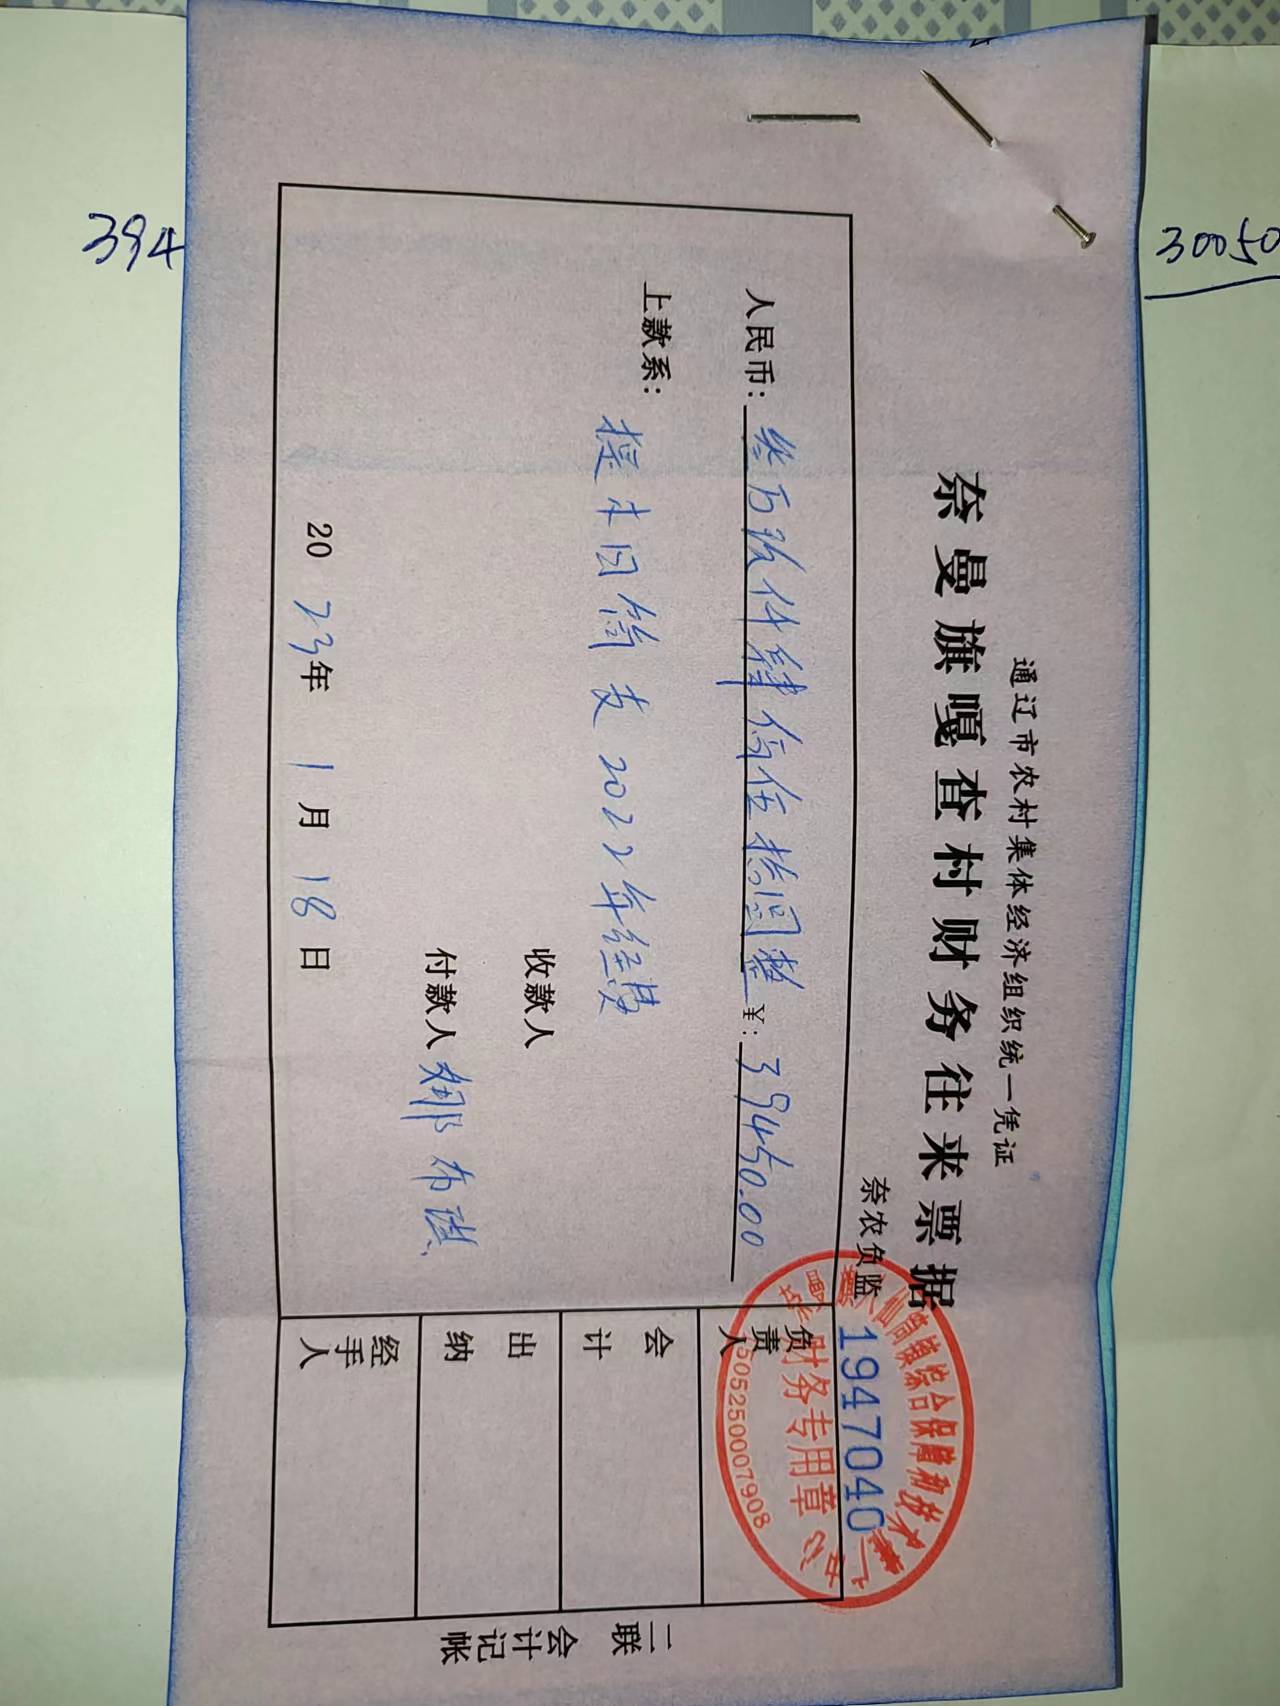 通辽市农村集体经济组织统一凭证
奈曼旗嘎查村财务往来票据
奈农负监 1947040
人民币：叁万玖仟肆佰伍拾圆整 ￥：39450.00
上款系：
支2022年经费
收款人
付款人
2023年1月18日
负责人
会计
出纳
经手人
二联 会计记帐
财务专用章
1505250007908
394
30050